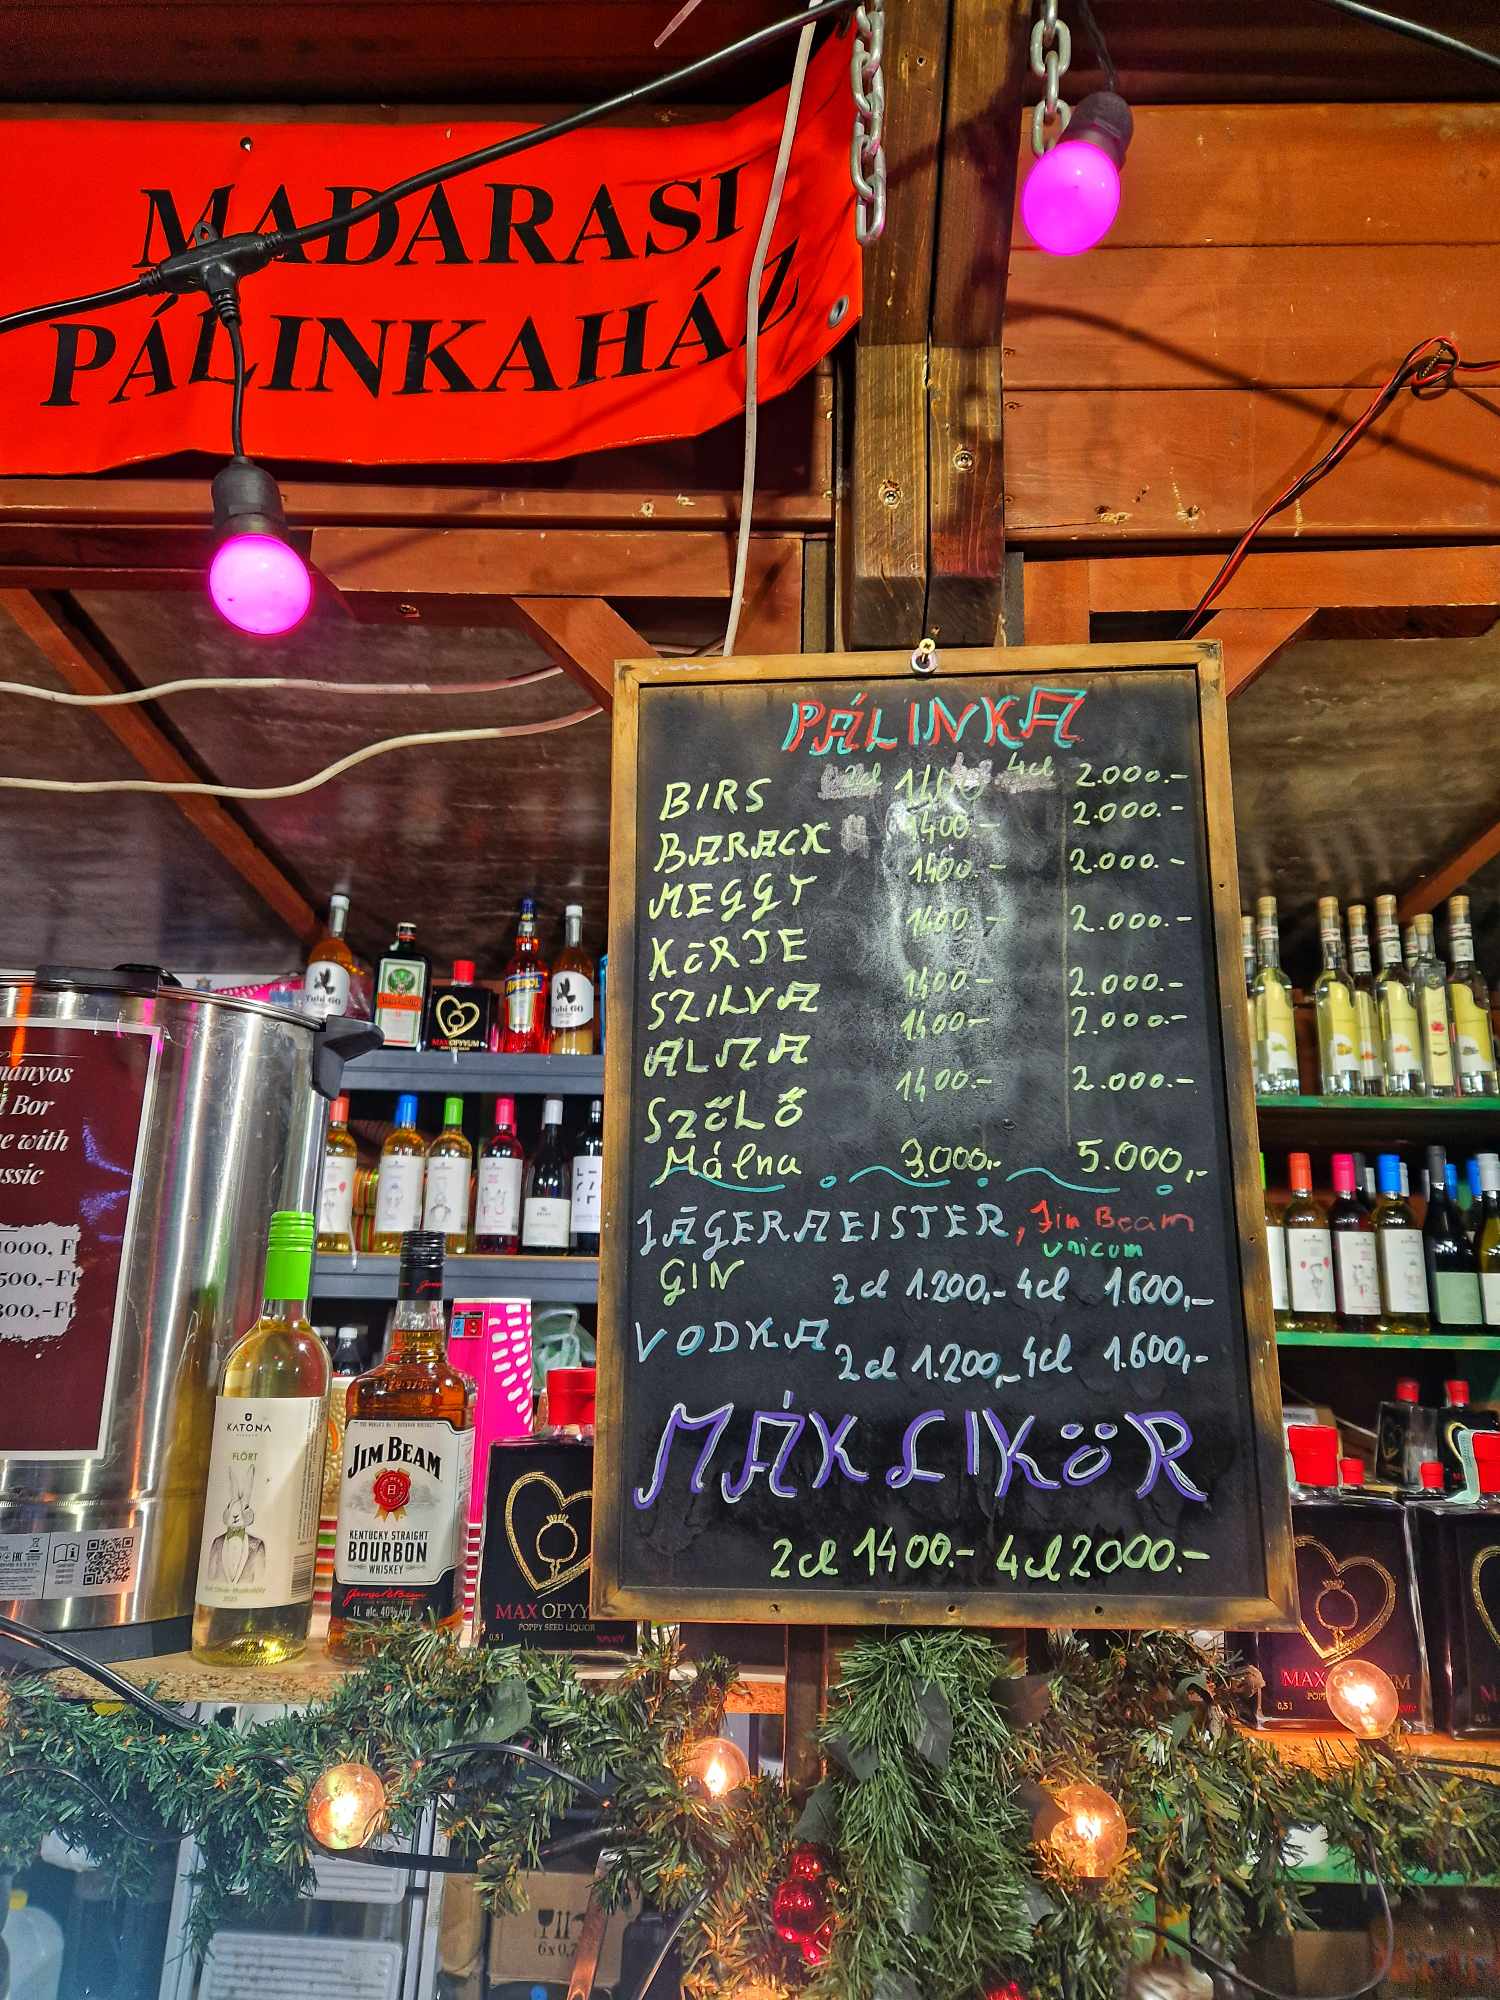 MADARASI
PÁLINKAHÁZ
PÁLINKA
2cl 4cl
BIRS 1400 2.000.-
BARACK 1400- 2.000.-
MEGGY 1400.- 2.000.-
KÖRTE 1400.- 2.000.-
SZILVA 1400.- 2.000.-
ALMA 1400.- 2.000.-
SZŐLŐ 1400.- 2.000.-
Málna 3.000,- 5.000,-
JÄGERMEISTER, Jim Beam
unicum
GIN 2cl 1.200,- 4cl 1.600,-
VODKA 2cl 1.200,- 4cl 1.600,-
MÁK LIKÖR
2cl 1400.- 4cl 2000.-
Bor
with
1000, Ft
500,-Ft
300,-Ft
Yubi GO
MAXOPYYUM
APEROL
Yubi GO
KATONA
FLÖRT
JIM BEAM
KENTUCKY STRAIGHT
BOURBON
WHISKEY
1L alc. 40% vol
MAX OPYY
POPPY SEED LIQUOR
0,5 l
MAX
0,5 l
6x0,7